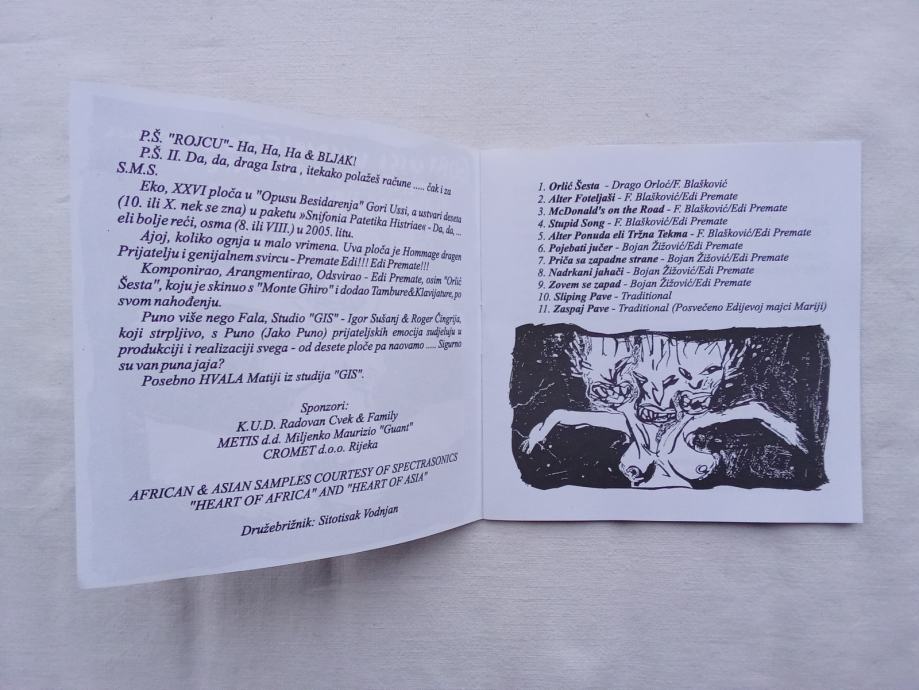 P.Š. "ROJCU"- Ha, Ha, Ha & BLJAK!
P.Š. II. Da, da, draga Istra , itekako polažeš račune ..... čak i za
S.M.S.
Eko, XXVI ploča u "Opusu Besidarenja" Gori Ussi, a ustvari deseta
(10. ili X. nek se zna) u paketu »Snifonia Patetika Histriae« - Da, da, ...
eli bolje reći, osma (8. ili VIII.) u 2005. litu.
Ajoj, koliko ognja u malo vrimena. Uva ploča je Hommage dragen
Prijatelju i genijalnem svircu - Premate Edi!!! Edi Premate!!!
Komponirao, Arangmentirao, Odsvirao - Edi Premate, osim "Orlić
Šesta", koju je skinuo s "Monte Ghiro" i dodao Tambure&Klavijature, po
svom nahođenju.
Puno više nego Fala, Studio "GIS" - Igor Sušanj & Roger Čingrija,
koji strpljivo, s Puno (Jako Puno) prijateljskih emocija sudjeluju u
produkciji i realizaciji svega - od desete ploče pa naovamo ..... Sigurno
su van puna jaja?
Posebno HVALA Matiji iz studija "GIS".
Sponzori:
K.U.D. Radovan Cvek & Family
METIS d.d. Miljenko Maurizio "Guant"
CROMET d.o.o. Rijeka
AFRICAN & ASIAN SAMPLES COURTESY OF SPECTRASONICS
"HEART OF AFRICA" AND "HEART OF ASIA"
Družebrižnik: Sitotisak Vodnjan
1. Orlić Šesta - Drago Orloć/F. Blašković
2. Alter Foteljaši - F. Blašković/Edi Premate
3. McDonald's on the Road - F. Blašković/Edi Premate
4. Stupid Song - F. Blašković/Edi Premate
5. Alter Ponuda eli Tržna Tekma - F. Blašković/Edi Premate
6. Pojebati jučer - Bojan Žižović/Edi Premate
7. Priča sa zapadne strane - F. Blašković/Edi Premate
8. Nadrkani jahači - Bojan Žižović/Edi Premate
9. Zovem se zapad - Bojan Žižović/Edi Premate
10. Sliping Pave - Traditional
11. Zaspaj Pave - Traditional (Posvečeno Edijevoj majci Mariji)